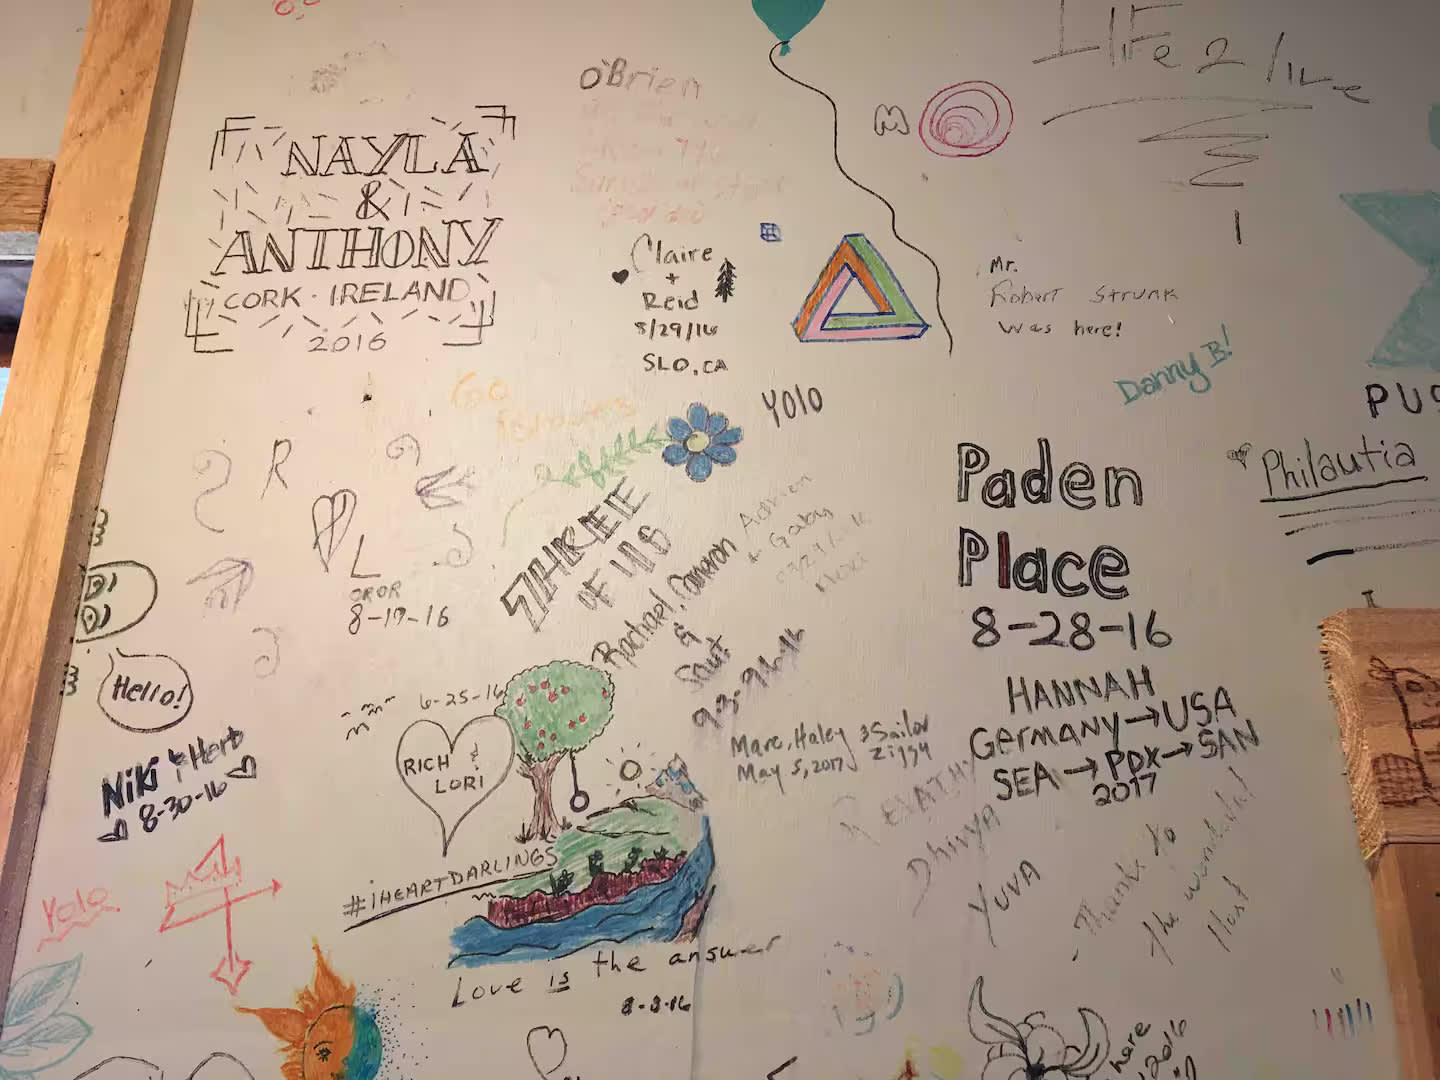 NAYLA
&
ANTHONY
CORK · IRELAND
2016
O'Brien
Claire
+
Reid
8/29/16
SLO, CA
M
LIFE 2 live
Mr.
Robert Strunk
was here!
Danny B!
YOLO
Go
R
L
8-17-16
OF US
Rachael, Cameron
&
Adrien
+ Gaby
Paden
Place
8-28-16
Philautia
HANNAH
GERMANY→USA
SEA→PDX→SAN
2017
Marc, Haley & Sailor
May 5, 2017 Ziggy
REVATHI
Dhivya
YUVA
Thanks to
the wonderful
Host
Hello!
Niki & Herb
8-30-16
Yolo
6-25-16
RICH &
LORI
#iHEARTDARLINGS
Love is the answer
8-8-16
here
2016